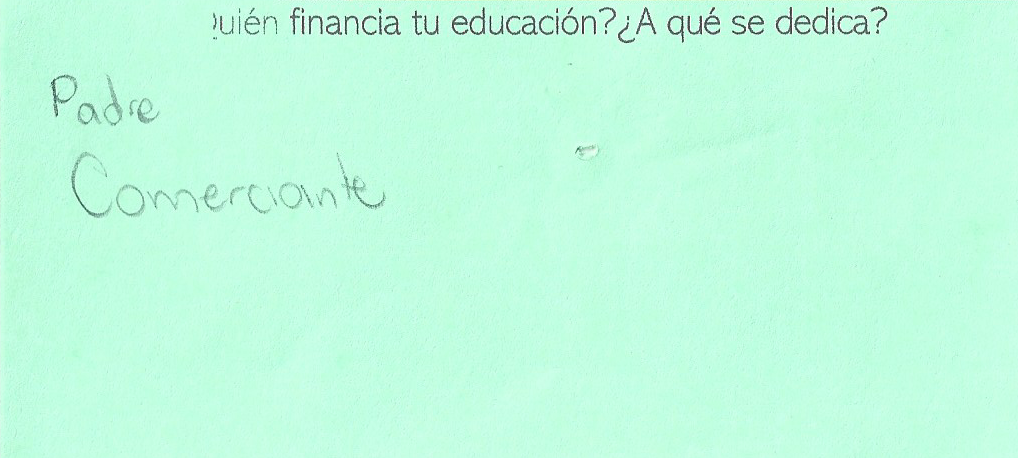 uién financia tu educación?¿A qué se dedica?
Padre
Comerciante